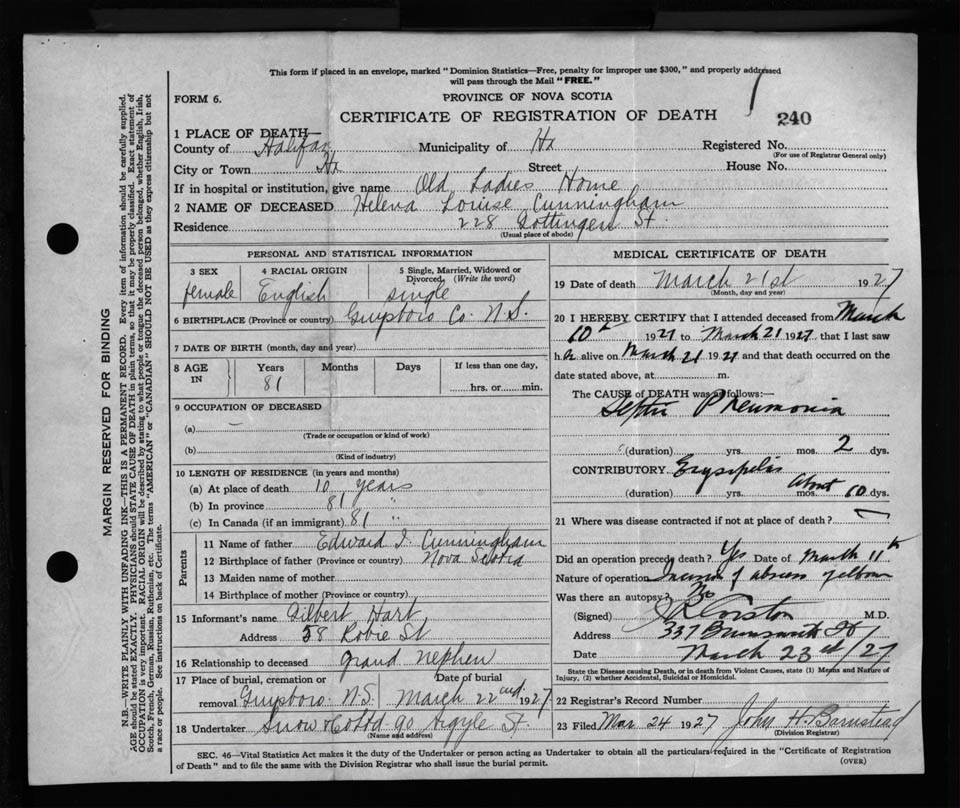 This form if placed in an envelope, marked "Dominion Statistics—Free, penalty for improper use $300," and properly addressed
will pass through the Mail "FREE."
FORM 6.
PROVINCE OF NOVA SCOTIA
CERTIFICATE OF REGISTRATION OF DEATH
240
1 PLACE OF DEATH—
County of Halifax Municipality of Hx Registered No.
(For use of Registrar General only)
City or Town Hx Street House No.
If in hospital or institution, give name Old Ladies Home
2 NAME OF DECEASED Helena Louise Cunningham
Residence 228 Gottingen St
(Usual place of abode)
PERSONAL AND STATISTICAL INFORMATION
3 SEX 4 RACIAL ORIGIN 5 Single, Married, Widowed or
Divorced. (Write the word)
female English single
6 BIRTHPLACE (Province or country) Guysboro Co. N.S.
7 DATE OF BIRTH (month, day and year)
8 AGE IN Years Months Days If less than one day,
81 hrs. or min.
9 OCCUPATION OF DECEASED
(a) —
(Trade or occupation or kind of work)
(b)
(Kind of industry)
10 LENGTH OF RESIDENCE (in years and months)
(a) At place of death 10 years
(b) In province 81 "
(c) In Canada (if an immigrant) 81 "
Parents
11 Name of father Edward J. Cunningham
12 Birthplace of father (Province or country) Nova Scotia
13 Maiden name of mother
14 Birthplace of mother (Province or country)
15 Informant's name Gilbert Hart
Address 58 Robie St
16 Relationship to deceased grand nephew
17 Place of burial, cremation or Date of burial
removal Guysboro. N.S. March 22nd. 1927
18 Undertaker Snow & Co Ltd 90 Argyle St.
(Name and address)
MEDICAL CERTIFICATE OF DEATH
19 Date of death March 21st 1927
(Month, day and year)
20 I HEREBY CERTIFY that I attended deceased from March
10th 1927 to March 21 1927 that I last saw
her alive on March 21 1927 and that death occurred on the
date stated above, at m.
The CAUSE of DEATH was as follows:—
Septic Pneumonia
(duration) yrs. mos. 2 dys.
CONTRIBUTORY Erysipelis
(duration) yrs. mos. about 10 dys.
21 Where was disease contracted if not at place of death?
Did an operation precede death? Yes Date of March 11th
Nature of operation Incision of abscess of elbow
Was there an autopsy? No
(Signed) Corston M.D.
Address 337 Brunswick St
Date March 23rd/27
State the Disease causing Death, or in death from Violent Causes, state (1) Means and Nature of
Injury, (2) whether Accidental, Suicidal or Homicidal.
22 Registrar's Record Number
23 Filed Mar 24 1927 John H. Barnstead
(Division Registrar)
SEC. 46—Vital Statistics Act makes it the duty of the Undertaker or person acting as Undertaker to obtain all the particulars required in the "Certificate of Registration
of Death" and to file the same with the Division Registrar who shall issue the burial permit.
(OVER)
MARGIN RESERVED FOR BINDING
N.B.—WRITE PLAINLY WITH UNFADING INK—THIS IS A PERMANENT RECORD. Every item of information should be carefully supplied.
AGE should be stated EXACTLY. PHYSICIANS should STATE CAUSE OF DEATH in plain terms, so that it may be properly classified. Exact statement of
OCCUPATION is very important. RACIAL ORIGIN will be described by stating to what people or tongue the deceased person belonged, whether English, Irish,
Scotch, French, German, Russian, Ruthenian, etc. The terms "AMERICAN" or "CANADIAN" SHOULD NOT BE USED as they express citizenship but not
a race or people. See instructions on back of Certificate.